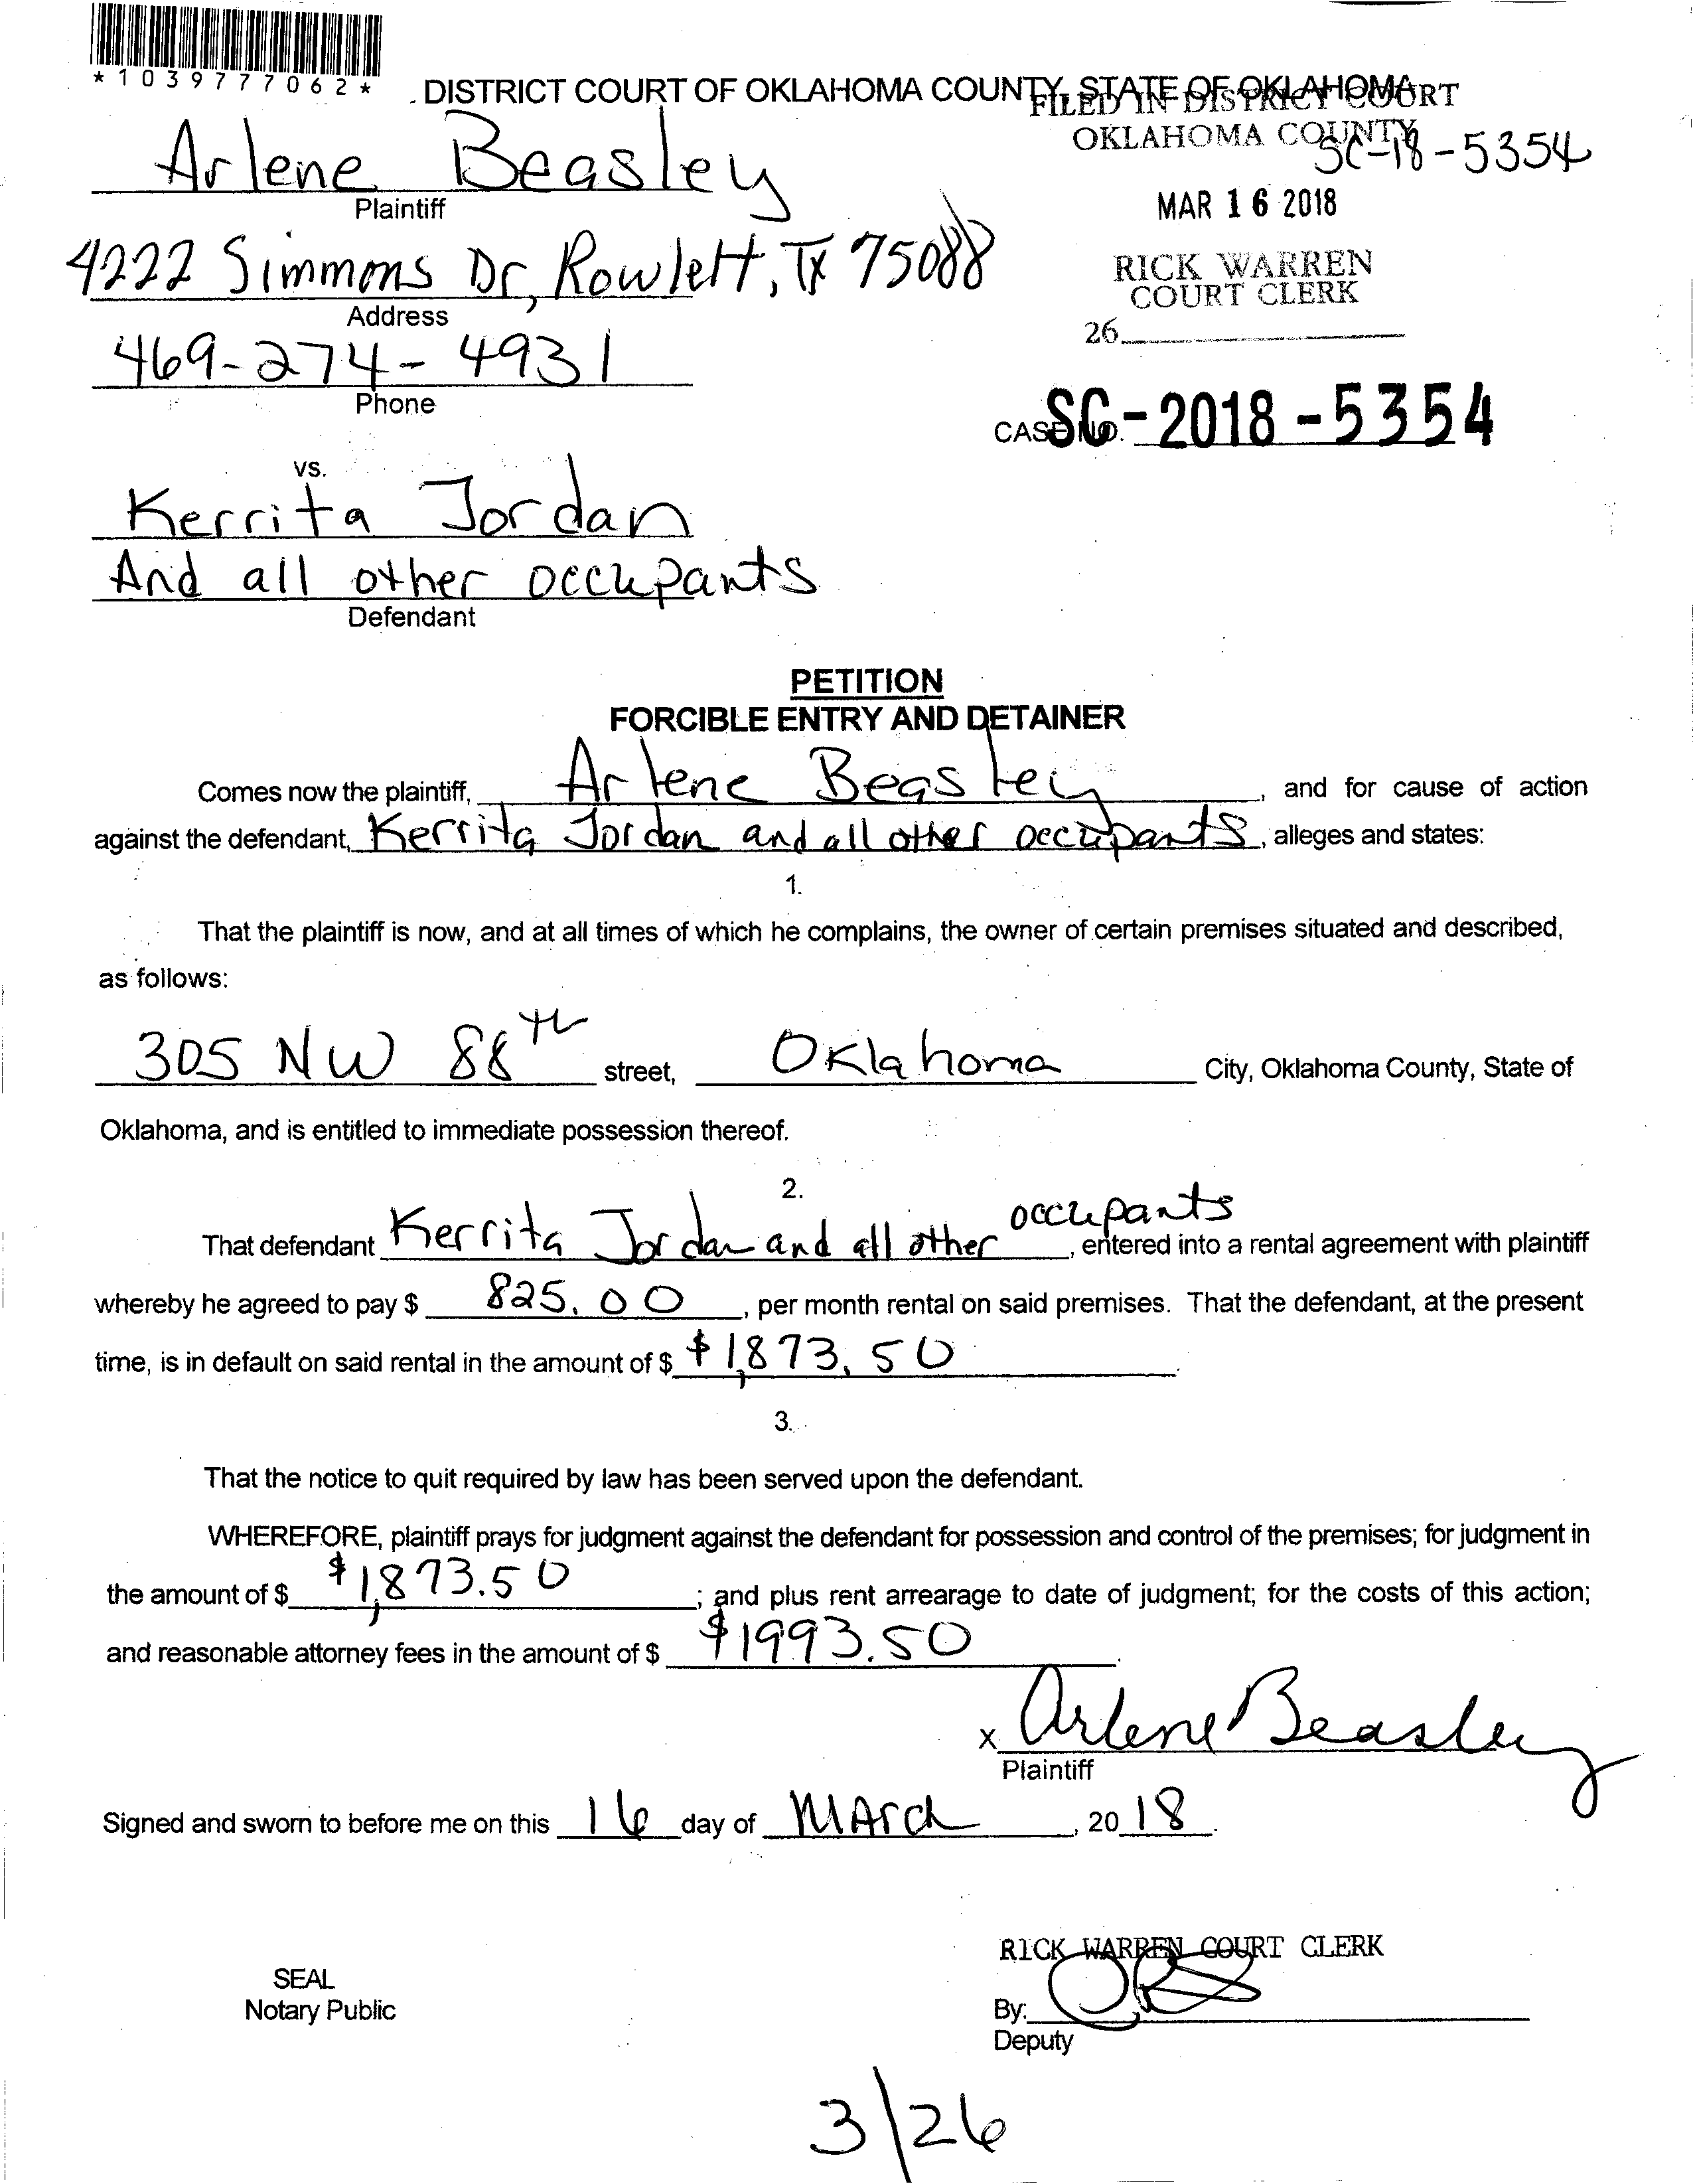 *1039777062*
DISTRICT COURT OF OKLAHOMA COUNTY, STATE OF OKLAHOMA
FILED IN DISTRICT COURT
OKLAHOMA COUNTY
SC-18-5354
Arlene Beasley
Plaintiff
MAR 16 2018
4222 Simmons Dr, Rowlett, TX 75088
RICK WARREN
COURT CLERK
Address
26
469-274-4931
Phone
CASE NO. SC-2018-5354
vs.
Kerrita Jordan
And all other occupants
Defendant
PETITION
FORCIBLE ENTRY AND DETAINER
Comes now the plaintiff, Arlene Beasley, and for cause of action
against the defendant, Kerrita Jordan and all other occupants, alleges and states:
1.
That the plaintiff is now, and at all times of which he complains, the owner of certain premises situated and described,
as follows:
305 NW 88th street, Oklahoma City, Oklahoma County, State of
Oklahoma, and is entitled to immediate possession thereof.
2.
That defendant Kerrita Jordan and all other occupants, entered into a rental agreement with plaintiff
whereby he agreed to pay $ 825.00, per month rental on said premises. That the defendant, at the present
time, is in default on said rental in the amount of $ $1,873.50.
3.
That the notice to quit required by law has been served upon the defendant.
WHEREFORE, plaintiff prays for judgment against the defendant for possession and control of the premises; for judgment in
the amount of $ $1,873.50; and plus rent arrearage to date of judgment; for the costs of this action;
and reasonable attorney fees in the amount of $ $1993.50.
x Arlene Beasley
Plaintiff
Signed and sworn to before me on this 16 day of MArch, 2018.
RICK WARREN COURT CLERK
SEAL
Notary Public
By:
Deputy
3/26